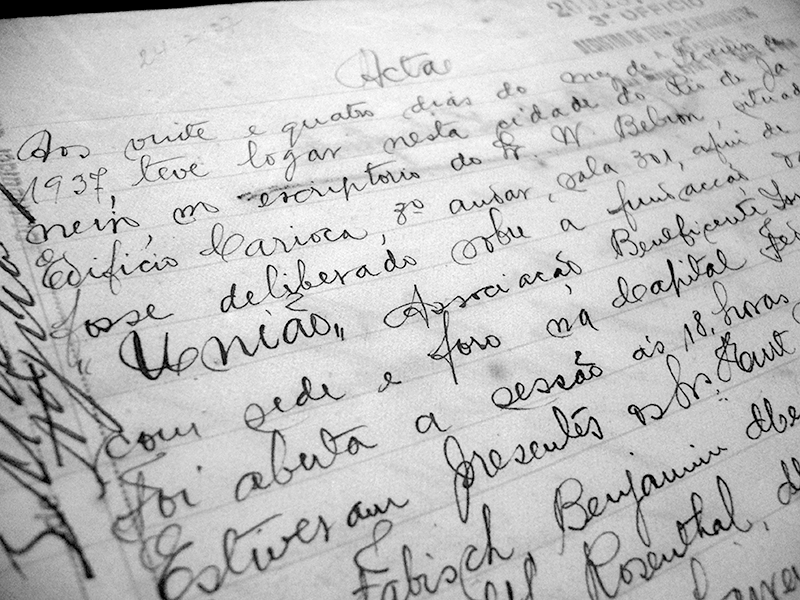 24-2-37
3º OFFICIO
Acta
Aos vinte e quatro dias do mez de Fevereiro de
1937, teve logar nesta cidade do Rio de Ja
neiro, no escriptorio do Sr. W. Belron, situado
Edificio Carioca, 3º andar, sala 301, afim de
fosse deliberado sobre a fundacção
"União" Associacão Beneficente
com sede e foro na Capital Fe
Foi aberta a sessão ás 18, horas
Estiveram presentes os Srs.
Fabisch, Benjamin
Rosenthal,